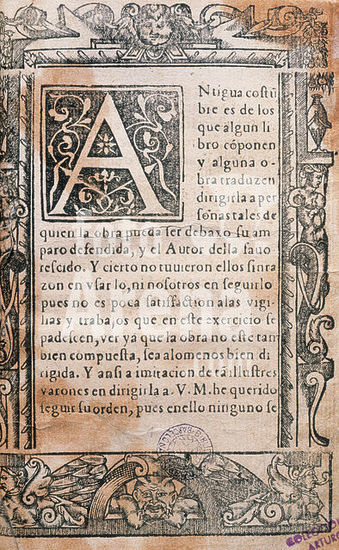 ANtigua costũ
bre es de los
que algun li
bro cõponen
y alguna o-
bra traduzen
dirigirla a per
sonas tales de
quien la obra pueda ser debaxo su am
paro defendida, y el Autor della fauo
rescido. Y cierto no tuuieron ellos sinra
zon en vsarlo, ni nosotros en seguirlo
pues no es poca satisfaction alas vigi
lias y trabajos que en este exercicio se
padescen, ver ya que la obra no este tam
bien compuesta, sea alomenos bien di
rigida. Y ansi a imitacion de tã illustres
varones en dirigirla a. V. M. he querido
seguir su orden, pues enello ninguno se
COLECCION
ARTURO